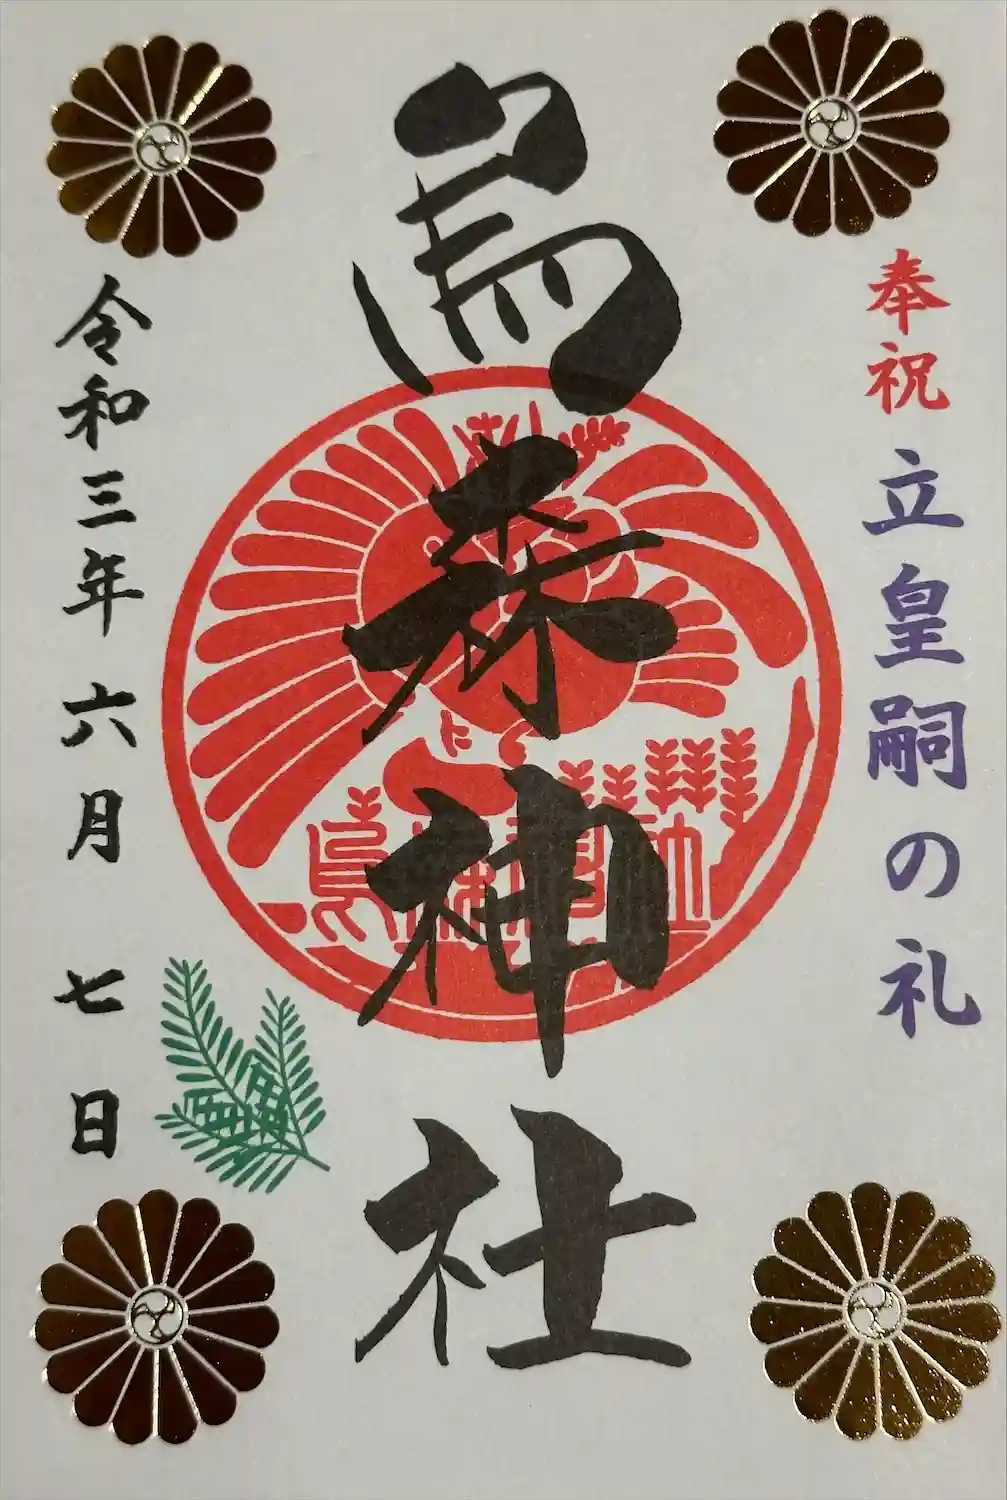 奉祝 立皇嗣の礼
烏森神社
令和三年六月七日